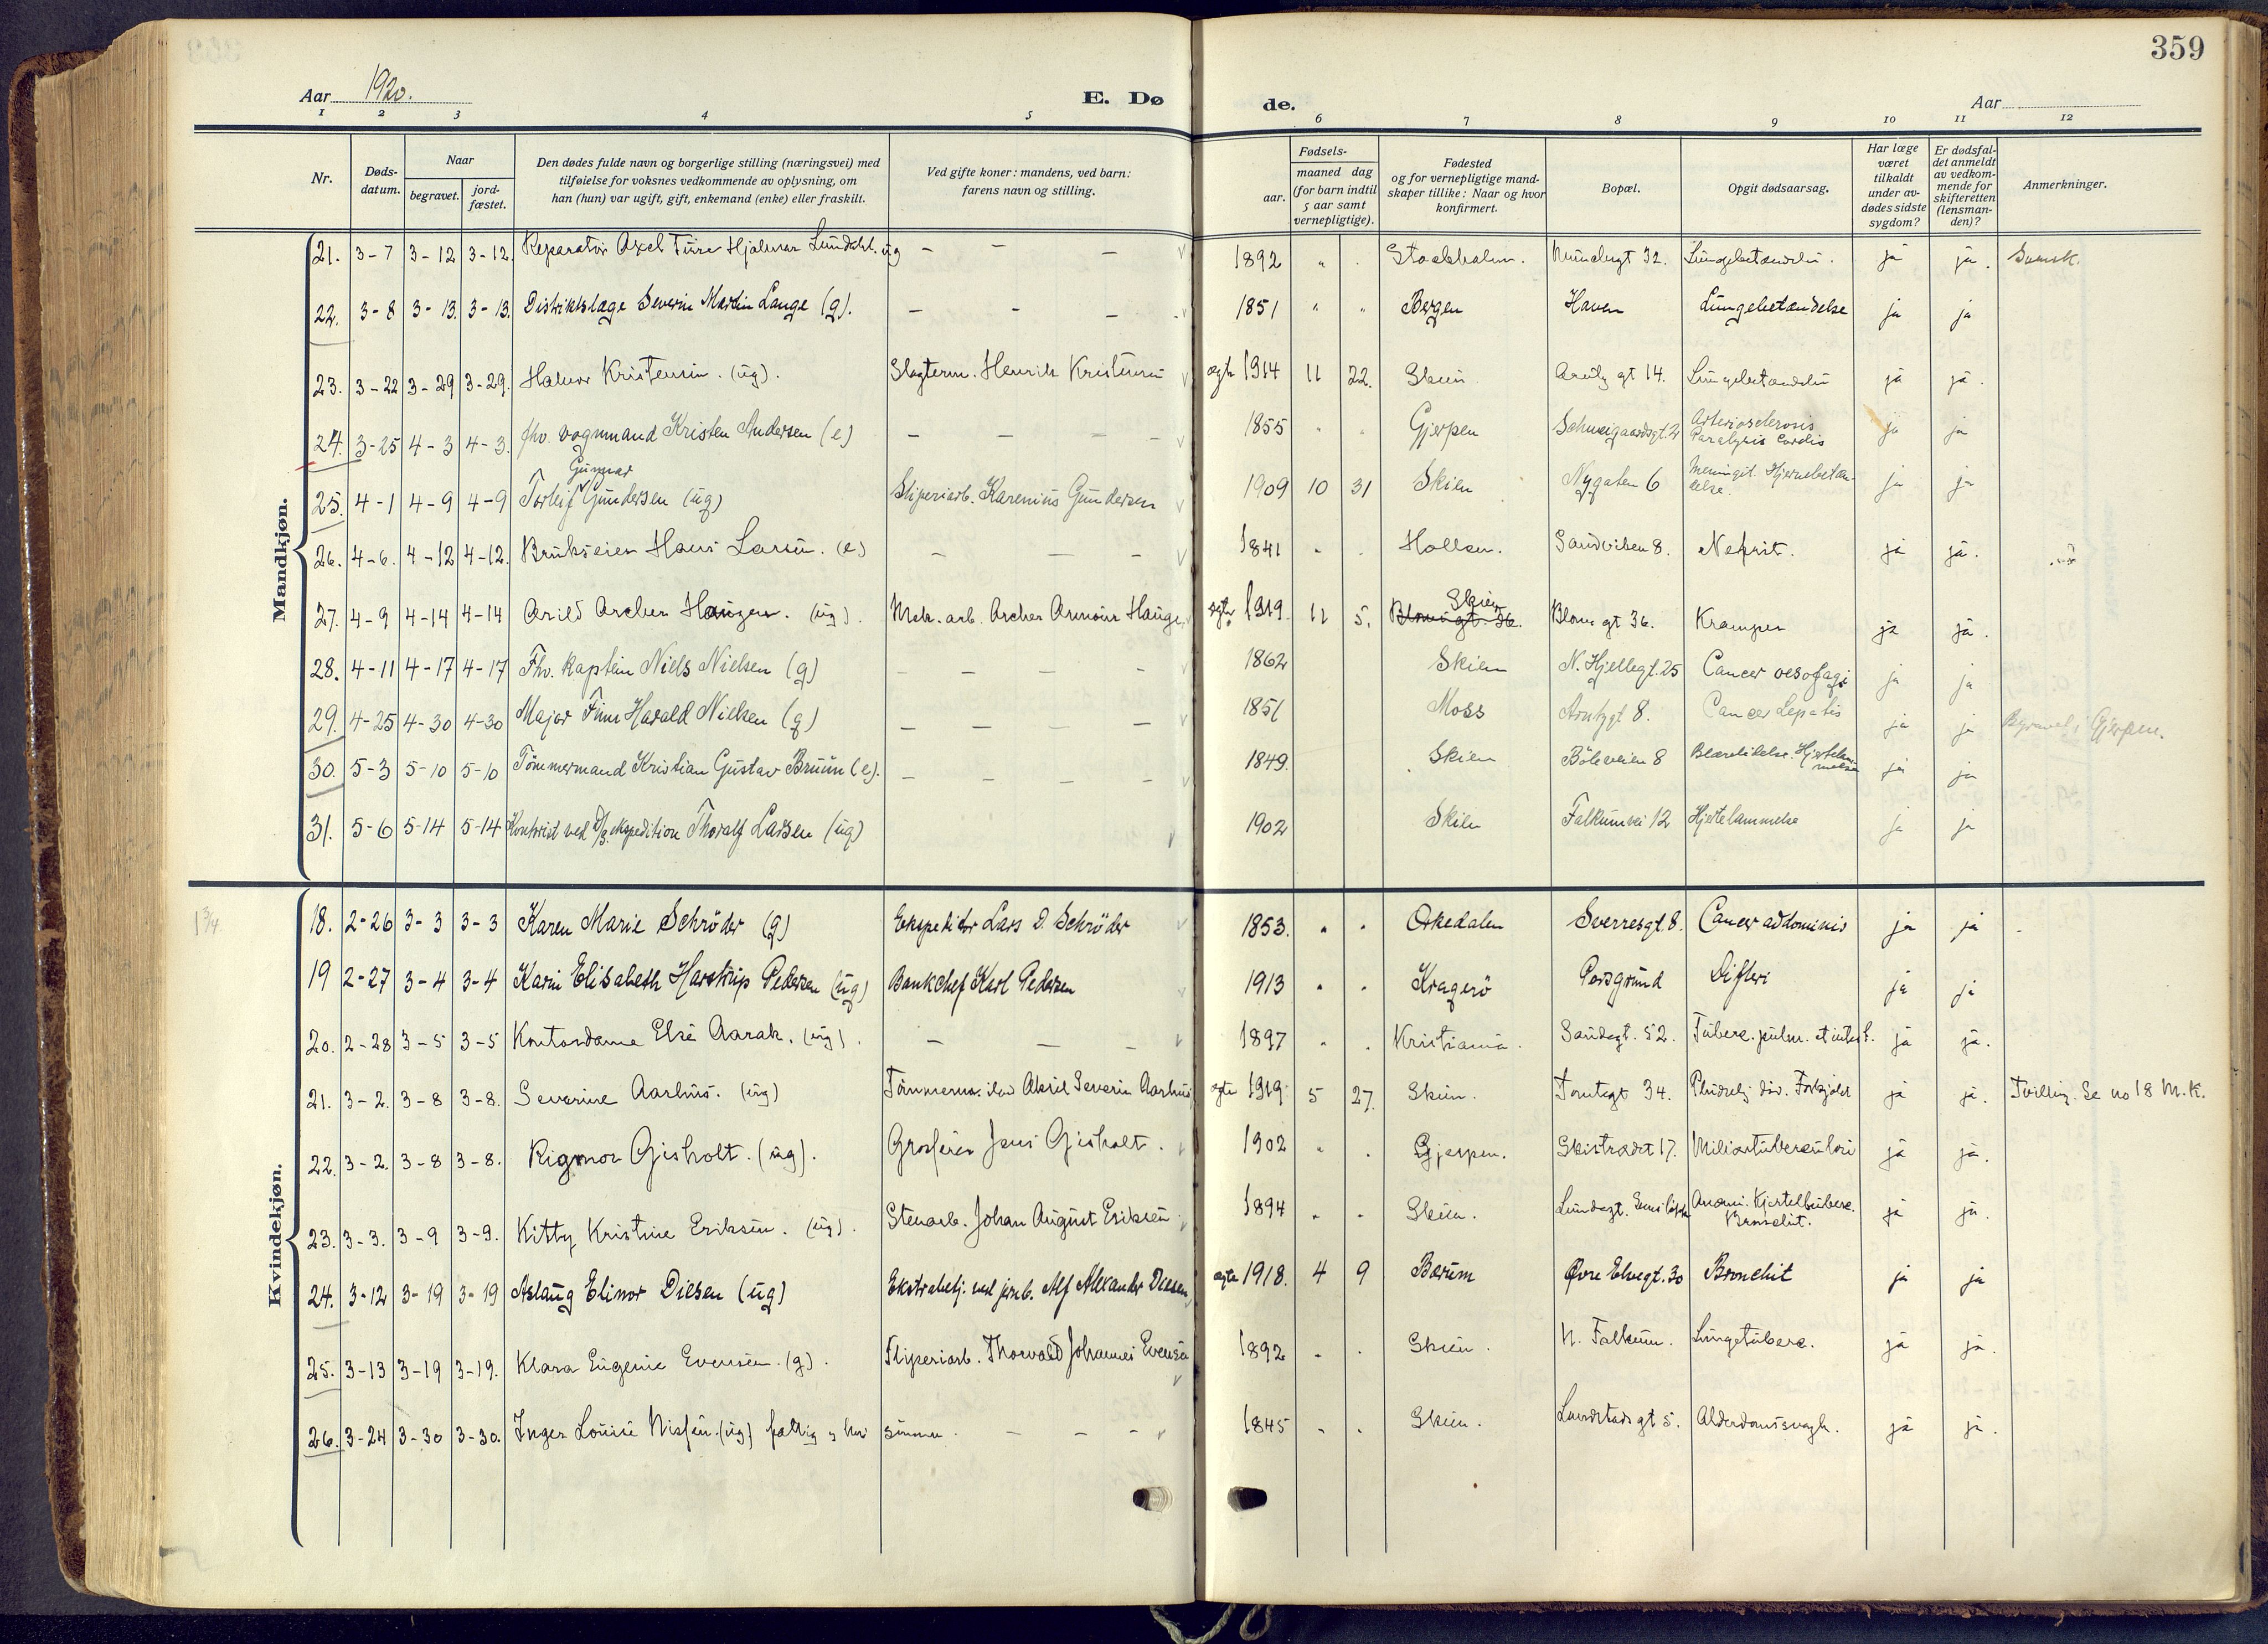 359
Aar 1920. E. Døde. Aar
1 2 3 4 5 6 7 8 9 10 11 12
Nr. Dødsdatum. Naar begravet. jordfæstet. Den dødes fulde navn og borgerlige stilling (næringsvei) med tilføielse for voksnes vedkommende av oplysning, om han (hun) var ugift, gift, enkemand (enke) eller fraskilt. Ved gifte koner: mandens, ved barn: farens navn og stilling. Fødsels- aar. maaned dag (for barn indtil 5 aar samt vernepligtige). Fødested og for vernepligtige mandskaper tillike: Naar og hvor konfirmert. Bopæl. Opgit dødsaarsag. Har læge været tilkaldt under avdødes sidste sygdom? Er dødsfaldet anmeldt av vedkommende for skifteretten (lensmanden)? Anmerkninger.
Mandkjøn.
21. 3-7 3-12 3-12. Reparatør Axel Ture Hjalmar Lundahl. ug – – – 1892 " . Stockholm. Munchsgt 32. Lungebetændelse. ja ja. Svensk.
22. 3-8 3-13. 3-13. Distriktslæge Severin Martin Lange (g). – – – 1851 " " Bergen Haven Lungebetændelse ja ja
23. 3-22 3-29 3-29. Halvor Kristensen. (ug). Slagterm. Henrik Kristensen ægte 1914 11 22. Skien Arntz gt 14. Lungebetændelse ja ja.
24. 3-25 4-3 4-3. fhv. vognmand Kristen Andersen (e) – – – – 1855 " " Gjerpen Schweigaardsgt. 2 Arteriosclerosis Paralysis cordis ja ja
25. 4-1 4-9 4-9 Torleif Gunnar Gundersen (ug) Sliperiarb. Karenius Gundersen 1909 10 31 Skien Nygaten 6 Meningit. Hjernebetændelse. ja ja
26. 4-6. 4-12 4-12. Brukseier Hans Larsen. (e) – – – 1841 " . Hollen. Sandviken 8. Nefrit. ja ja.
27. 4-9 4-14 4-14 Arild Archer Haugen. (ug). Mek. arb. Archer Armour Haugen ægte 1919. 11 5. Blomsgt. 36. Skien Bloms gt 36. Kramper ja ja.
28. 4-11 4-17 4-17 Fhv. Kaptein Niels Nielsen (g) – – – – 1862 Skien N. Hjellegt. 25 Cancer oesofagi ja ja
29. 4-25 4-30 4-30 Major Finn Harald Nielsen (g) – – – – 1851 Moss Arntzgt 8. Cancer hepatis ja ja Begravet i Gjerpen.
30. 5-3 5-10 5-10 Tømmermand Kristian Gustav Bruun (e). – – – – 1849. Skien Bøleveien 8 Blærelidelse. Hjertelammelse ja ja
31. 5-6 5-14 5-14 Kontorist ved D/S. ekspedition Thoralf Larsen (ug) 1902 Skien Falkumvei 12 Hjertelammelse ja ja
Kvindekjøn.
18. 2-26 3-3 3-3 Karen Marie Schrøder (g) Ekspeditør Lars D. Schrøder 1853. " " Orkedalen Sverresgt. 8. Cancer addominis ja ja
19 2-27 3-4 3-4 Karin Elisabeth Harstrup Pedersen (ug) Bankchef Karl Pedersen 1913 " " Kragerö Porsgrund Difteri ja ja
20. 2-28 3-5 3-5 Kontordame Else Aarak. (ug). – – – 1897 " . Kristiania. Sandagt. 52. Tuberc. pulm. et intest. ja ja.
21. 3-2. 3-8 3-8. Severine Aarhus. (ug) Tømmerm. Aksel Severin Aarhus ægte 1919. 5 27. Skien. Torntegt 34. Pludselig død. Forkjølet ja ja. Tvilling. Se no 18 M. K.
22. 3-2. 3-8 3-8. Rigmor Gisholt. (ug). Grosserer Jens Gisholt. 1902 " . Gjerpen. Skistrædet 17. Miliærtuberculose ja ja.
23. 3-3. 3-9 3-9. Kitty Kristine Eriksen. (ug). Stenarb. Johan August Eriksen 1894 " . Skien. Lundegt. Anæmi. Kjerteltuberc. Bronchit. ja ja.
24. 3-12 3-19 3-19 Aslaug Elinor Diesen (ug) Ekstrabetj. ved jernb. Alf Alexander Diesen ægte 1918. 4 9 Bærum Øvre Elvegt. 30 Bronchit ja ja
25. 3-13 3-19 3-19. Klara Eugenie Evensen. (g). Sliperiarb. Thorvald Johannes Evensen 1892 " . Skien. N. Falkum. Lungetuberc. ja ja.
26. 3-24 3-30 3-30. Inger Louise Nissen. (ug) fattig – – – 1845 " . Skien. Lundstads gt 5. Alderdomssvagh. ja ja.